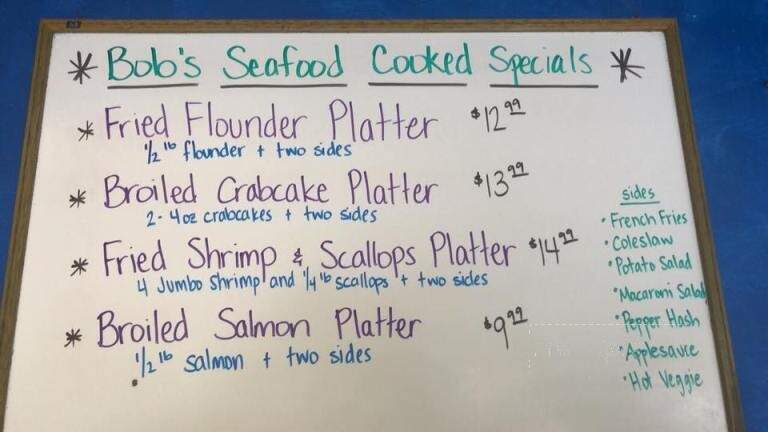 * Bob's Seafood Cooked Specials *
* Fried Flounder Platter $12.99
1/2 lb flounder + two sides
* Broiled Crabcake Platter $13.99
2- 4oz crabcakes + two sides
* Fried Shrimp & Scallops Platter $14.99
4 Jumbo Shrimp and 1/4 lb scallops + two sides
* Broiled Salmon Platter $9.99
1/2 lb salmon + two sides
sides
• French Fries
• Coleslaw
• Potato Salad
• Macaroni Salad
• Pepper Hash
• Applesauce
• Hot Veggie